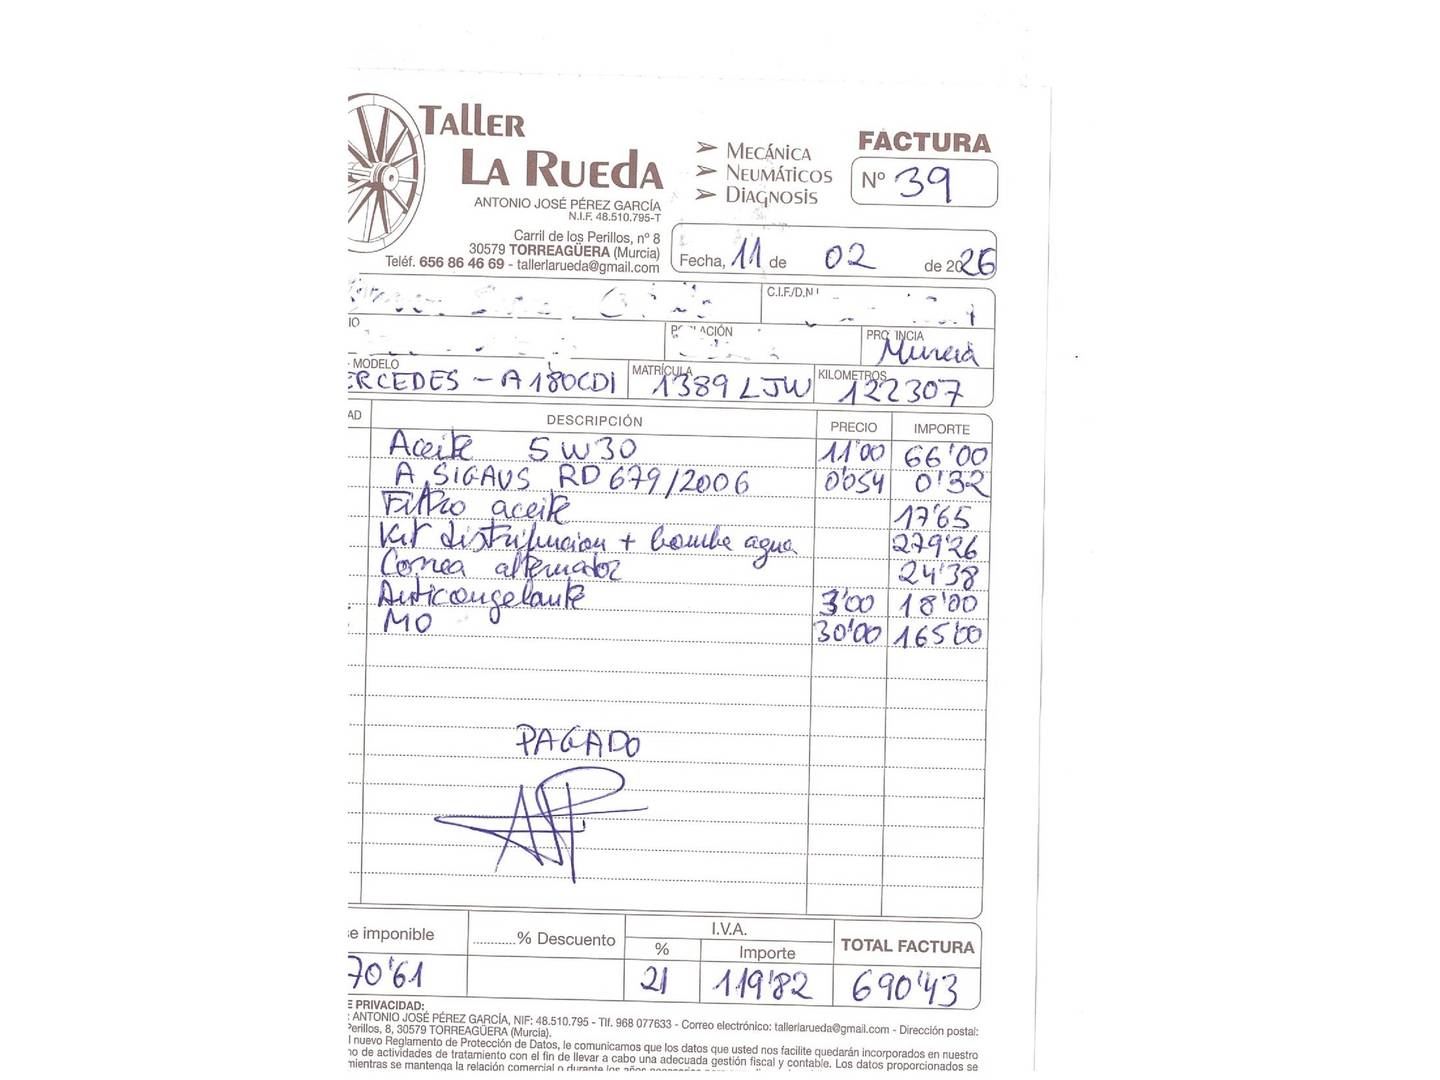 TALLER
LA RUEDA
ANTONIO JOSÉ PÉREZ GARCÍA
N.I.F. 48.510.795-T
Carril de los Perillos, nº 8
30579 TORREAGÜERA (Murcia)
Teléf. 656 86 46 69 - tallerlarueda@gmail.com
➢ MECÁNICA
➢ NEUMÁTICOS
➢ DIAGNOSIS
FACTURA
Nº 39
Fecha, 11 de 02 de 2026
C.I.F./D.N.I
IO POBLACIÓN PROVINCIA
Murcia
MODELO MATRÍCULA KILOMETROS
ERCEDES - A 180CDI 1389 LJW 122307
AD DESCRIPCIÓN PRECIO IMPORTE
Aceite 5W30 11'00 66'00
A SIGAUS RD 679/2006 0'054 0'32
Filtro aceite 17'65
Kit distribucion + bomba agua 279'26
Correa alternador 24'38
Anticongelante 3'00 18'00
MO 30'00 165'00
PAGADO
e imponible ..........% Descuento I.V.A. TOTAL FACTURA
% Importe
70'61 21 119'82 690'43
E PRIVACIDAD:
: ANTONIO JOSÉ PÉREZ GARCÍA, NIF: 48.510.795 - Tlf. 968 077633 - Correo electrónico: tallerlarueda@gmail.com - Dirección postal:
Perillos, 8, 30579 TORREAGÜERA (Murcia).
l nuevo Reglamento de Protección de Datos, le comunicamos que los datos que usted nos facilite quedarán incorporados en nuestro
no de actividades de tratamiento con el fin de llevar a cabo una adecuada gestión fiscal y contable. Los datos proporcionados se
mientras se mantenga la relación comercial o durante los años